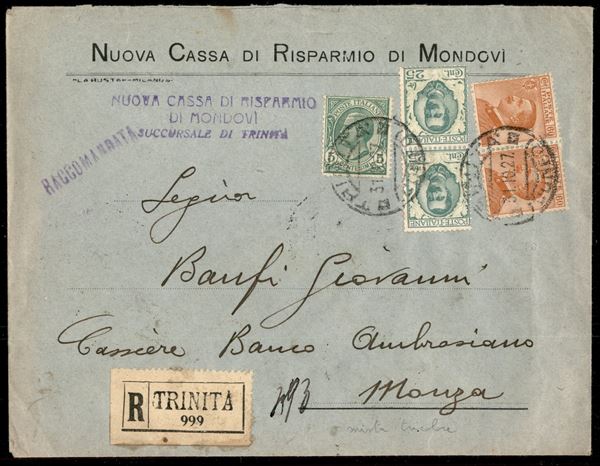 NUOVA CASSA DI RISPARMIO DI MONDOVÌ
NUOVA CASSA DI RISPARMIO
DI MONDOVÌ
SUCCURSALE DI TRINITÀ
RACCOMANDATA
POSTE ITALIANE
5 5
Cent. 25
POSTE ITALIANE
POSTE ITALIANE
31.10.27
Banfi Giovanni
Cassiere Banco Ambrosiano
Monza
R TRINITÀ
999